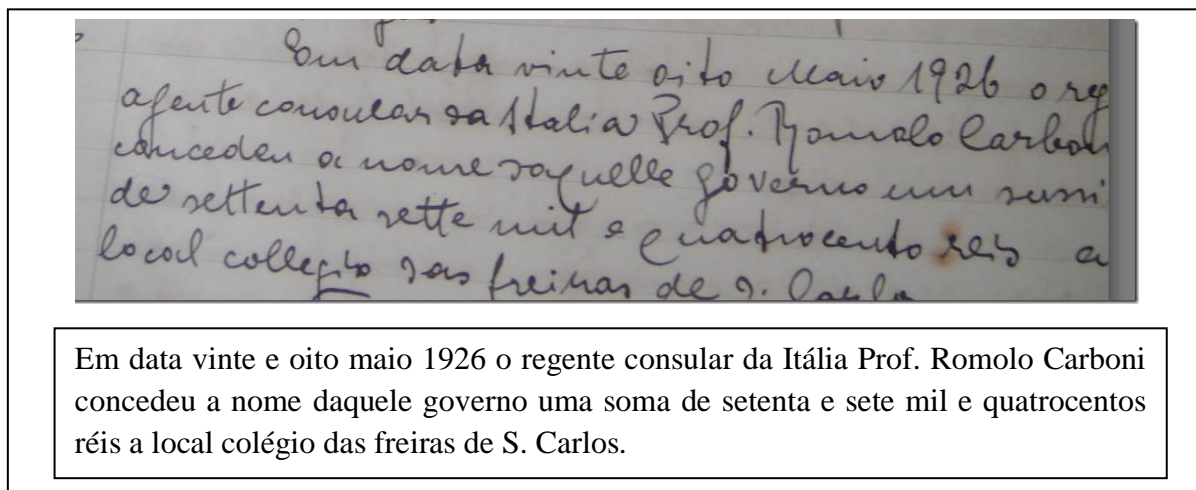 Em data vinte oito Maio 1926 o reg
agente consular da Italia Prof. Romolo Carbon
concedeu a nome daquelle governo um sussi
de settenta sette mil e quatrocento reis a
local collegio das freiras de S. Carlo
Em data vinte e oito maio 1926 o regente consular da Itália Prof. Romolo Carboni
concedeu a nome daquele governo uma soma de setenta e sete mil e quatrocentos
réis a local colégio das freiras de S. Carlos.